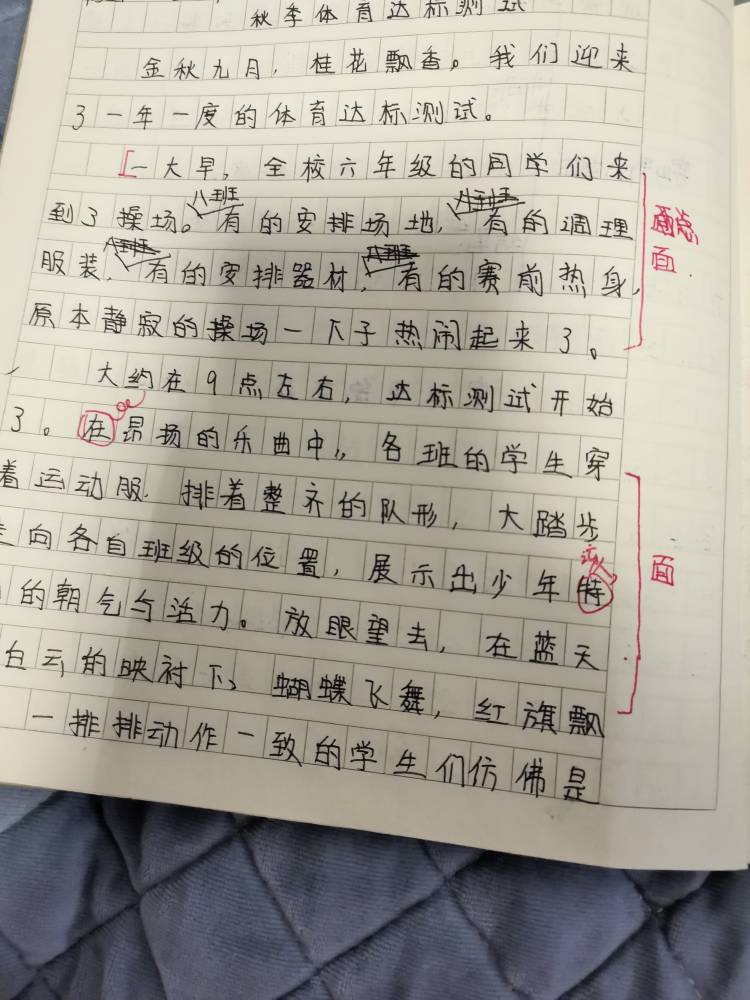 秋季体育达标测试
金秋九月，桂花飘香。我们迎来
了一年一度的体育达标测试。
一大早，全校六年级的同学们来
到了操场。有的安排场地，有的调理
服装，有的安排器材，有的赛前热身，
原本静寂的操场一下子热闹起来了。
大约在9点左右，达标测试开始
了。在昂扬的乐曲中，各班的学生穿
着运动服，排着整齐的队形，大踏步
走向各自班级的位置，展示出少年特
的朝气与活力。放眼望去，在蓝天
白云的映衬下，蝴蝶飞舞，红旗飘
一排排动作一致的学生们仿佛是
面
面